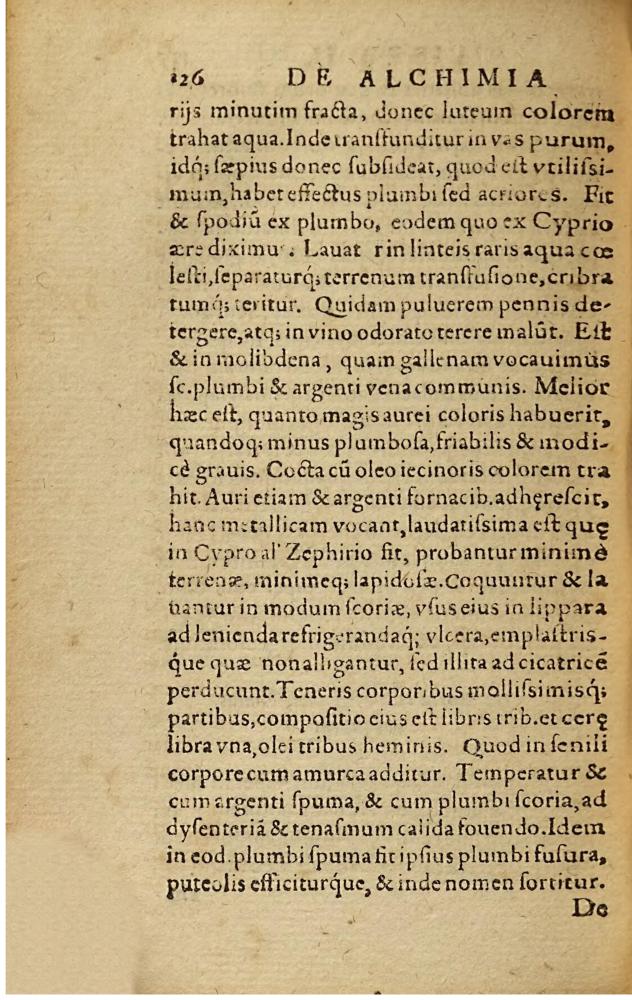 126 DE ALCHIMIA
rijs minutim fracta, donec luteum colorem
trahat aqua. Inde transfunditur in vas purum,
idq; sæpius donec subsideat, quod est vtilissi-
mum, habet effectus plumbi sed acriores. Fit
& spodiũ ex plumbo, eodem quo ex Cyprio
ære diximus. Lauatur in linteis raris aqua cœ
lesti, separaturq; terrenum transfusione, cribra
tumq; teritur. Quidam puluerem pennis de-
tergere, atq; in vino odorato terere malũt. Est
& in molibdena, quam gallenam vocauimus
sc. plumbi & argenti vena communis. Melior
hæc est, quanto magis aurei coloris habuerit,
quandoq; minus plumbosa, friabilis & modi-
cè grauis. Cocta cũ oleo iecinoris colorem tra
hit. Auri etiam & argenti fornacib. adhęrescit,
hanc metallicam vocant, laudatissima est quę
in Cypro al' Zephirio fit, probantur minimè
terrenæ, minimeq; lapidosæ. Coquuntur & la
uantur in modum scoriæ, vsus eius in lippara
ad lenienda refrigerandaq; vlcera, emplastris-
q́ue quæ non alligantur, sed illita ad cicatricẽ
perducunt. Teneris corporibus mollissimisq́;
partibus, compositio eius est libris trib. et cerę
libra vna, olei tribus heminis. Quod in senili
corpore cum amurca additur. Temperatur &
cum argenti spuma, & cum plumbi scoria, ad
dysenteriã & tenasmum calida fouendo. Idem
in eod. plumbi spuma fit ipsius plumbi fusura,
puteolis efficiturq́ue, & inde nomen sortitur.
De